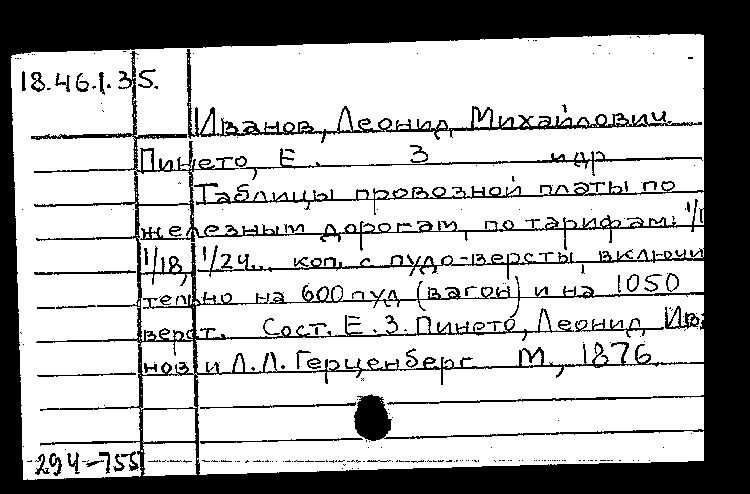 18.46.1.35.
Иванов, Леонид Михайлович
Пинето, Е. З и др
Таблицы провозной платы по
железным дорогам, по тарифам: 1/1
1/18, 1/24... коп. с пудо-версты, включи
тельно на 600 пуд (вагон) и на 1050
верст. Сост. Е.З. Пинето, Леонид Ива
нов и Л.Л. Герценберг М., 1876.
294-755